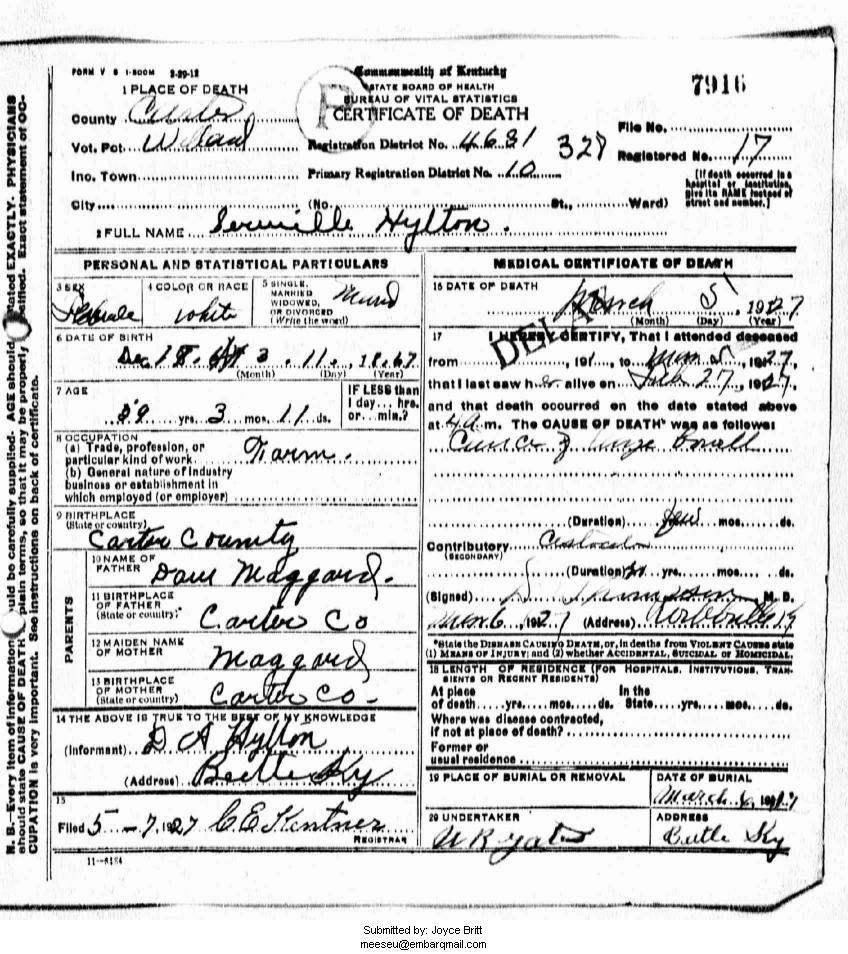 FORM V S 1-500M 2-29-12
Commonwealth of Kentucky
STATE BOARD OF HEALTH
BUREAU OF VITAL STATISTICS
CERTIFICATE OF DEATH
7916
1 PLACE OF DEATH
County Carter
Vot. Pct. Willard
Inc. Town
City (No. St., Ward)
Registration District No. 4681
Primary Registration District No. 10
328
File No.
Registered No. 17
[If death occurred in a
hospital or institution,
give its NAME instead of
street and number.]
2 FULL NAME Hylton.
PERSONAL AND STATISTICAL PARTICULARS
3 SEX
Female
4 COLOR OR RACE
White
5 SINGLE,
MARRIED
WIDOWED,
OR DIVORCED
(Write the word)
6 DATE OF BIRTH
Dec 18 3 11, 1867
(Month) (Day) (Year)
7 AGE
59 yrs. 3 mos. 11 ds.
IF LESS than
1 day... hrs.
or... min.?
8 OCCUPATION
(a) Trade, profession, or
particular kind of work Farm.
(b) General nature of industry
business or establishment in
which employed (or employer)
9 BIRTHPLACE
(State or country)
Carter County
PARENTS
10 NAME OF
FATHER
Maggard.
11 BIRTHPLACE
OF FATHER
(State or country)
Carter Co
12 MAIDEN NAME
OF MOTHER
Maggard
13 BIRTHPLACE
OF MOTHER
(State or country)
Carter Co.
14 THE ABOVE IS TRUE TO THE BEST OF MY KNOWLEDGE
(Informant) D A Hylton
(Address) Beetle Ky
15
Filed 5-7, 1927 C E Kentner
REGISTRAR
11-8184
MEDICAL CERTIFICATE OF DEATH
16 DATE OF DEATH
March 5, 1927
(Month) (Day) (Year)
DELAY
17 I HEREBY CERTIFY, That I attended deceased
from , 191 , to Mar 5, 1927
that I last saw her alive on Feb 27, 1927,
and that death occurred on the date stated above
at 4 a m. The CAUSE OF DEATH* was as follows:
Cancer of large bowell
(Duration) yrs. mos. ds.
Contributory
(SECONDARY)
(Duration) yrs. mos. ds.
(Signed) M. D.
Mar 6, 1927 (Address)
*State the DISEASE CAUSING DEATH, or, in deaths from VIOLENT CAUSES state
(1) MEANS OF INJURY; and (2) whether ACCIDENTAL, SUICIDAL or HOMICIDAL.
18 LENGTH OF RESIDENCE (FOR HOSPITALS, INSTITUTIONS, TRAN-
SIENTS OR RECENT RESIDENTS)
At place In the
of death yrs. mos. ds. State yrs. mos. ds.
Where was disease contracted,
if not at place of death?
Former or
usual residence
19 PLACE OF BURIAL OR REMOVAL
DATE OF BURIAL
March 6, 1927
20 UNDERTAKER
ADDRESS
Beetle Ky
N. B.—Every item of information should be carefully supplied. AGE should be stated EXACTLY. PHYSICIANS
should state CAUSE OF DEATH in plain terms, so that it may be properly classified. Exact statement of OC-
CUPATION is very important. See instructions on back of certificate.
Submitted by: Joyce Britt
meeseu@embarqmail.com